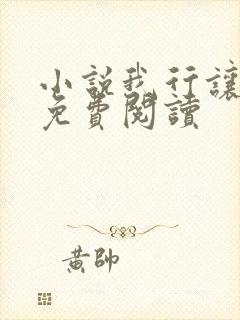 小說我行讓
免費閱讀
黃帥